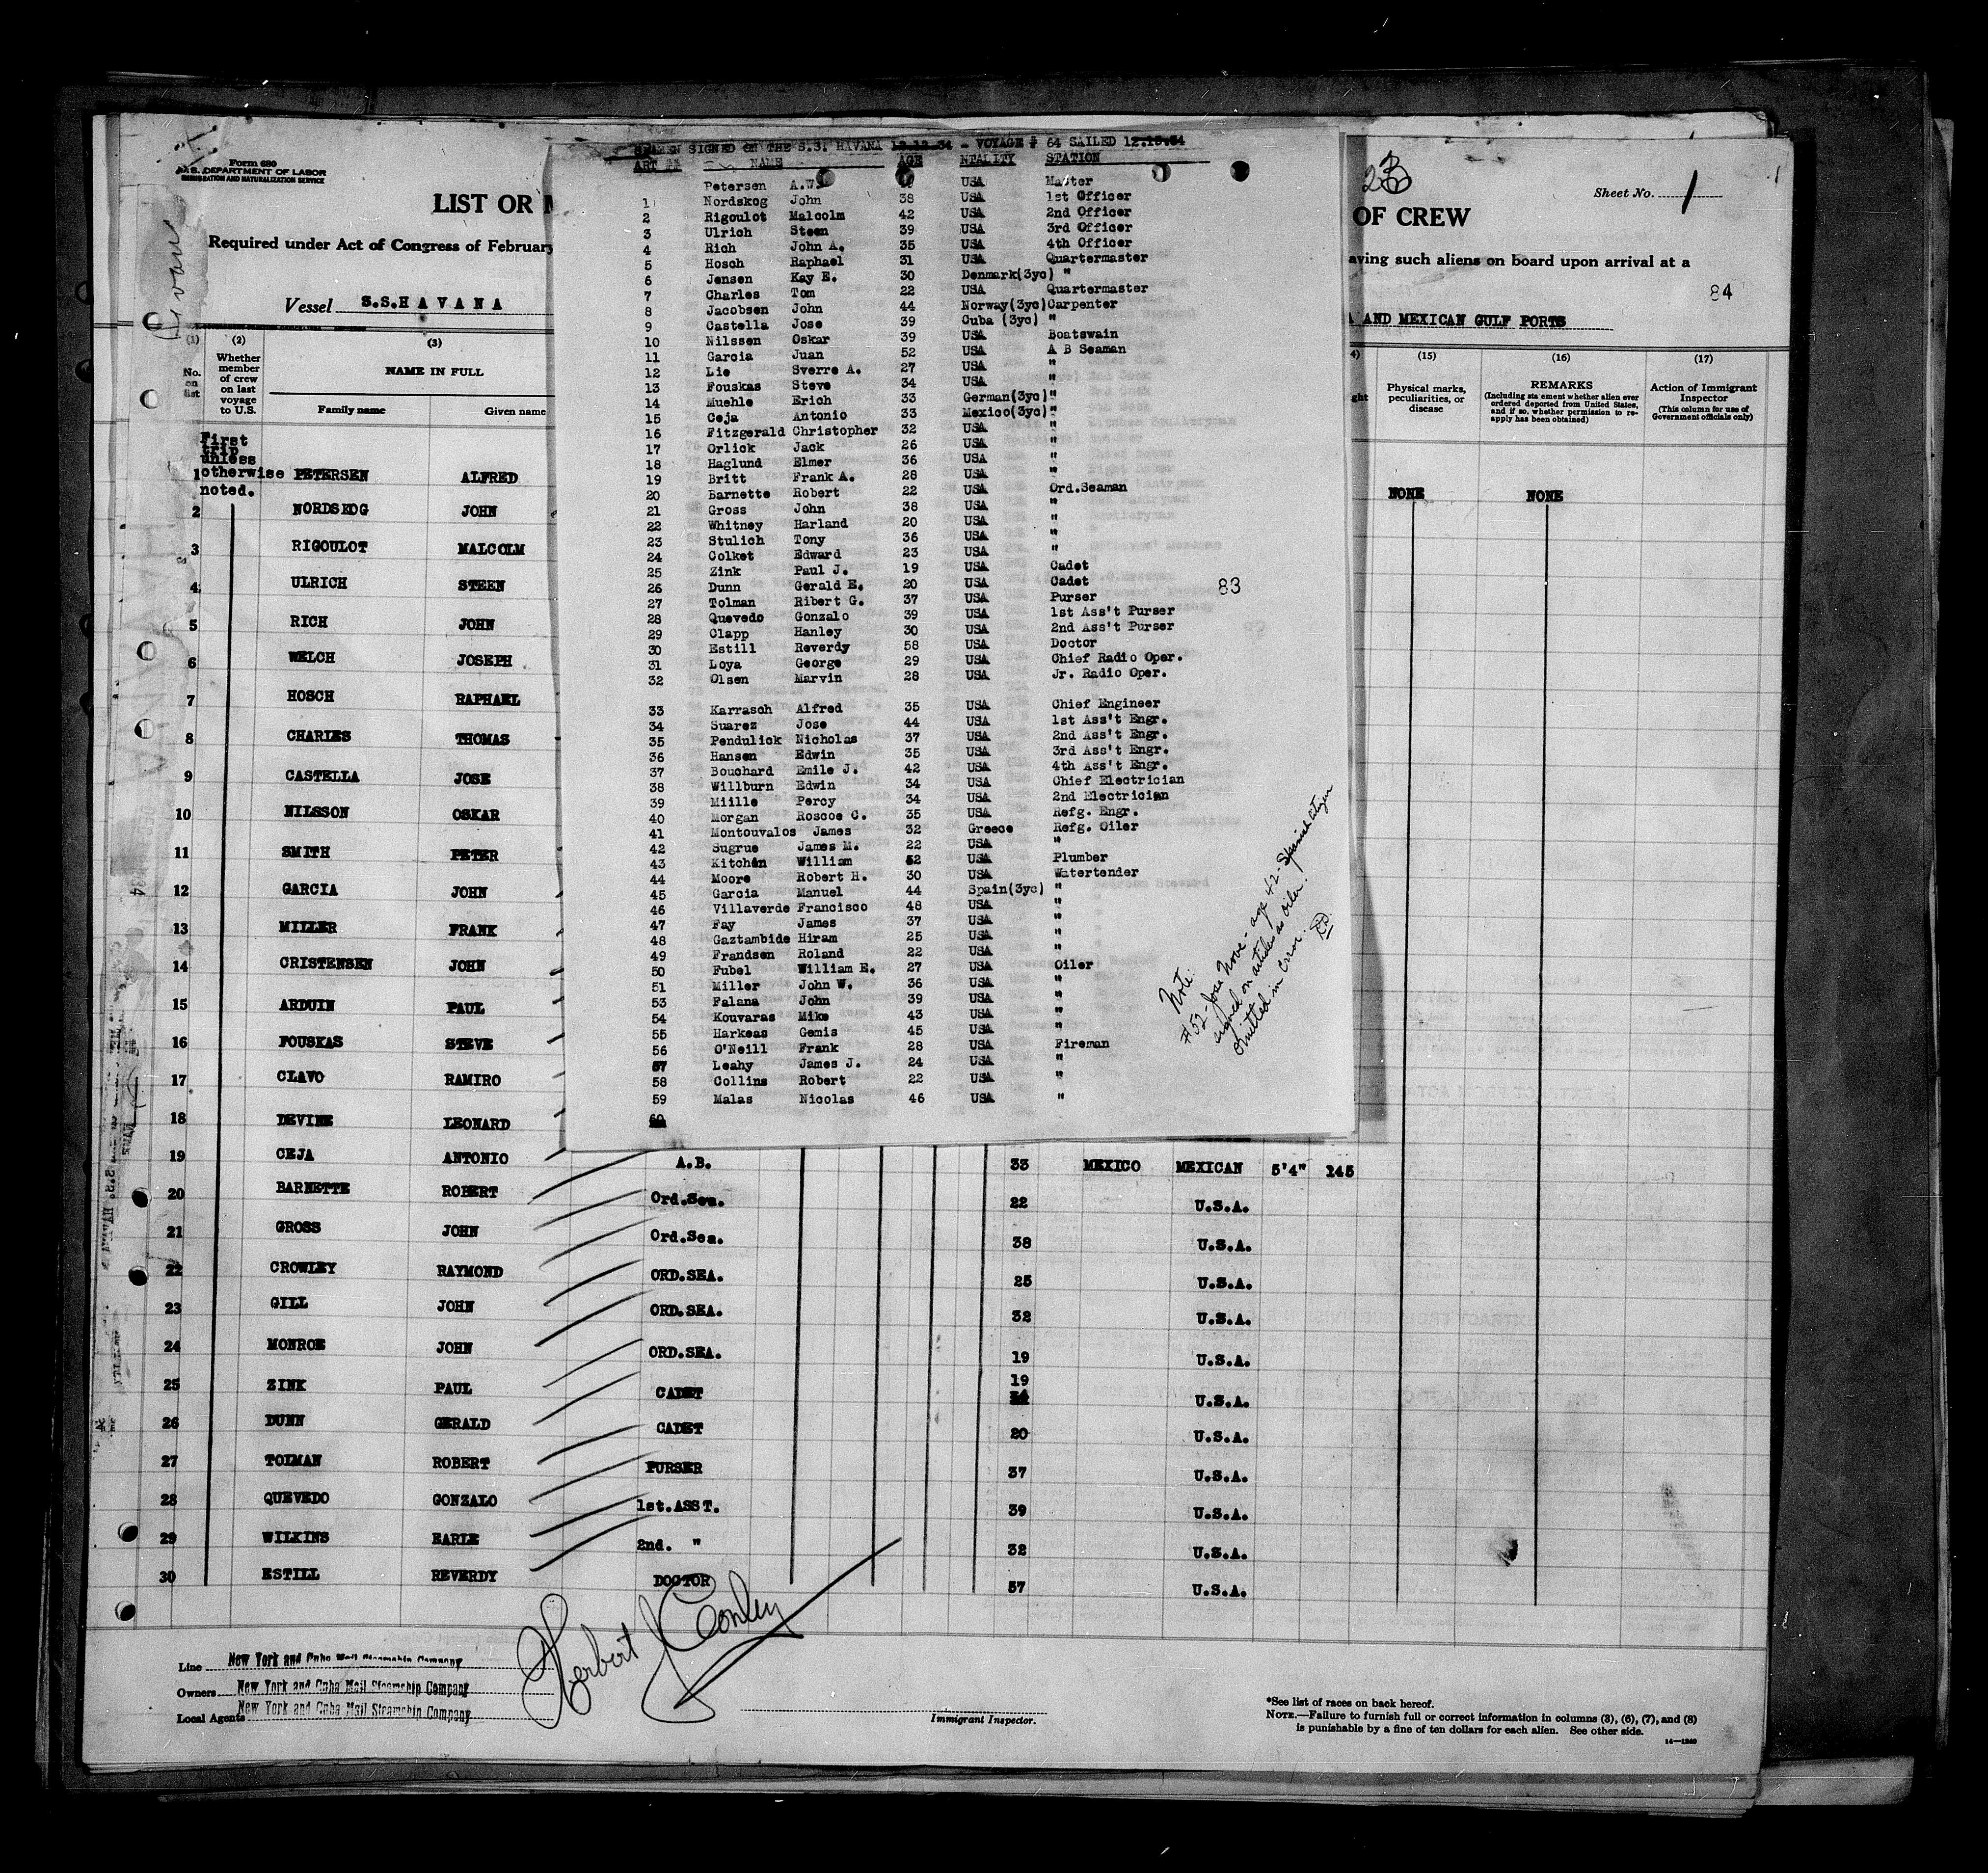 Form 680
U.S. DEPARTMENT OF LABOR
IMMIGRATION AND NATURALIZATION SERVICE
LIST OR
Required under Act of Congress of February
Vessel S.S.HAVANA
23
Sheet No. 1
OF CREW
aving such aliens on board upon arrival at a
84
AND MEXICAN GULF PORTS
(1) No. on list
(2) Whether member of crew on last voyage to U.S.
(3) NAME IN FULL
Family name Given name
(15) Physical marks, peculiarities, or disease
(16) REMARKS (Including statement whether alien ever ordered deported from United States, and if so, whether permission to reapply has been obtained)
(17) Action of Immigrant Inspector (This column for use of Government officials only)
First trip unless otherwise noted.
1 PETERSEN ALFRED NONE NONE
2 NORDSKOG JOHN
3 RIGOULOT MALCOLM
4 ULRICH STEEN
5 RICH JOHN
6 WELCH JOSEPH
7 HOSCH RAPHAEL
8 CHARLES THOMAS
9 CASTELLA JOSE
10 NILSSON OSKAR
11 SMITH PETER
12 GARCIA JOHN
13 MILLER FRANK
14 CRISTENSEN JOHN
15 ARDUIN PAUL
16 FOUSKAS STEVE
17 CLAVO RAMIRO
18 DEVINE LEONARD
19 CEJA ANTONIO A.B. 33 MEXICO MEXICAN 5'4" 145
20 BARNETTE ROBERT Ord.Sea. 22 U.S.A.
21 GROSS JOHN Ord.Sea. 38 U.S.A.
22 CROWLEY RAYMOND ORD.SEA. 25 U.S.A.
23 GILL JOHN ORD.SEA. 32 U.S.A.
24 MONROE JOHN ORD.SEA. 19 U.S.A.
25 ZINK PAUL CADET 19 U.S.A.
26 DUNN GERALD CADET 20 U.S.A.
27 TOLMAN ROBERT PURSER 37 U.S.A.
28 QUEVEDO GONZALO 1st.ASST. 39 U.S.A.
29 WILKINS EARLE 2nd. " 32 U.S.A.
30 ESTILL REVERDY DOCTOR 57 U.S.A.
SEAMEN SIGNED ON THE S.S. HAVANA 12.12.34 - VOYAGE # 64 SAILED 12.15.34
ART ## NAME AGE NTALITY STATION
Petersen A.W. USA Master
1 Nordskog John 38 USA 1st Officer
2 Rigoulot Malcolm 42 USA 2nd Officer
3 Ulrich Steen 39 USA 3rd Officer
4 Rich John A. 35 USA 4th Officer
5 Hosch Raphael 31 USA Quartermaster
6 Jensen Kay E. 30 Denmark(3yc) "
7 Charles Tom 22 USA Quartermaster
8 Jacobsen John 44 Norway(3yc) Carpenter
9 Castella Jose 39 Cuba (3yc) "
10 Nilssen Oskar 39 USA Boatswain
11 Garcia Juan 52 USA A B Seaman
12 Lie Sverre A. 27 USA "
13 Fouskas Steve 34 USA "
14 Muehle Erich 33 German(3yc) "
15 Ceja Antonio 33 Mexico(3yc) "
16 Fitzgerald Christopher 32 USA "
17 Orlick Jack 26 USA "
18 Haglund Elmer 36 USA "
19 Britt Frank A. 28 USA "
20 Barnette Robert 22 USA Ord.Seaman
21 Gross John 38 USA "
22 Whitney Harland 20 USA "
23 Stulich Tony 36 USA "
24 Colket Edward 23 USA "
25 Zink Paul J. 19 USA Cadet
26 Dunn Gerald E. 20 USA Cadet
27 Tolman Ribert G. 37 USA Purser
28 Quevedo Gonzalo 39 USA 1st Ass't Purser
29 Clapp Hanley 30 USA 2nd Ass't Purser
30 Estill Reverdy 58 USA Doctor
31 Loya George 29 USA Chief Radio Oper.
32 Olsen Marvin 28 USA Jr. Radio Oper.
83
33 Karrasch Alfred 35 USA Chief Engineer
34 Suarez Jose 44 USA 1st Ass't Engr.
35 Pendulick Nicholas 37 USA 2nd Ass't Engr.
36 Hansen Edwin 35 USA 3rd Ass't Engr.
37 Bouchard Emile J. 42 USA 4th Ass't Engr.
38 Willburn Edwin 34 USA Chief Electrician
39 Miille Percy 34 USA 2nd Electrician
40 Morgan Roscoe C. 35 USA Refg. Engr.
41 Montouvalos James 32 Greece Refg. Oiler
42 Sugrue James M. 22 USA "
43 Kitchen William 52 USA Plumber
44 Moore Robert H. 30 USA Watertender
45 Garcia Manuel 44 Spain(3yc) "
46 Villaverde Francisco 48 USA "
47 Fay James 37 USA "
48 Gaztambide Hiram 25 USA "
49 Frandsen Roland 22 USA "
50 Fubel William E. 27 USA Oiler
51 Miller John W. 36 USA "
53 Falana John 39 USA "
54 Kouvaras Mike 43 USA "
55 Harkeas Gemis 45 USA "
56 O'Neill Frank 28 USA Fireman
57 Leahy James J. 24 USA "
58 Collins Robert 22 USA "
59 Malas Nicolas 46 USA "
60
Note:
#52 - Jose Nove - age 42 - Spanish Citizen
signed on articles as oiler.
Omitted in error.
Herbert J Conley
Line New York and Cuba Mail Steamship Company
Owners New York and Cuba Mail Steamship Company
Local Agents New York and Cuba Mail Steamship Company
Immigrant Inspector.
*See list of races on back hereof.
NOTE.—Failure to furnish full or correct information in columns (3), (6), (7), and (8)
is punishable by a fine of ten dollars for each alien. See other side.
14—1240